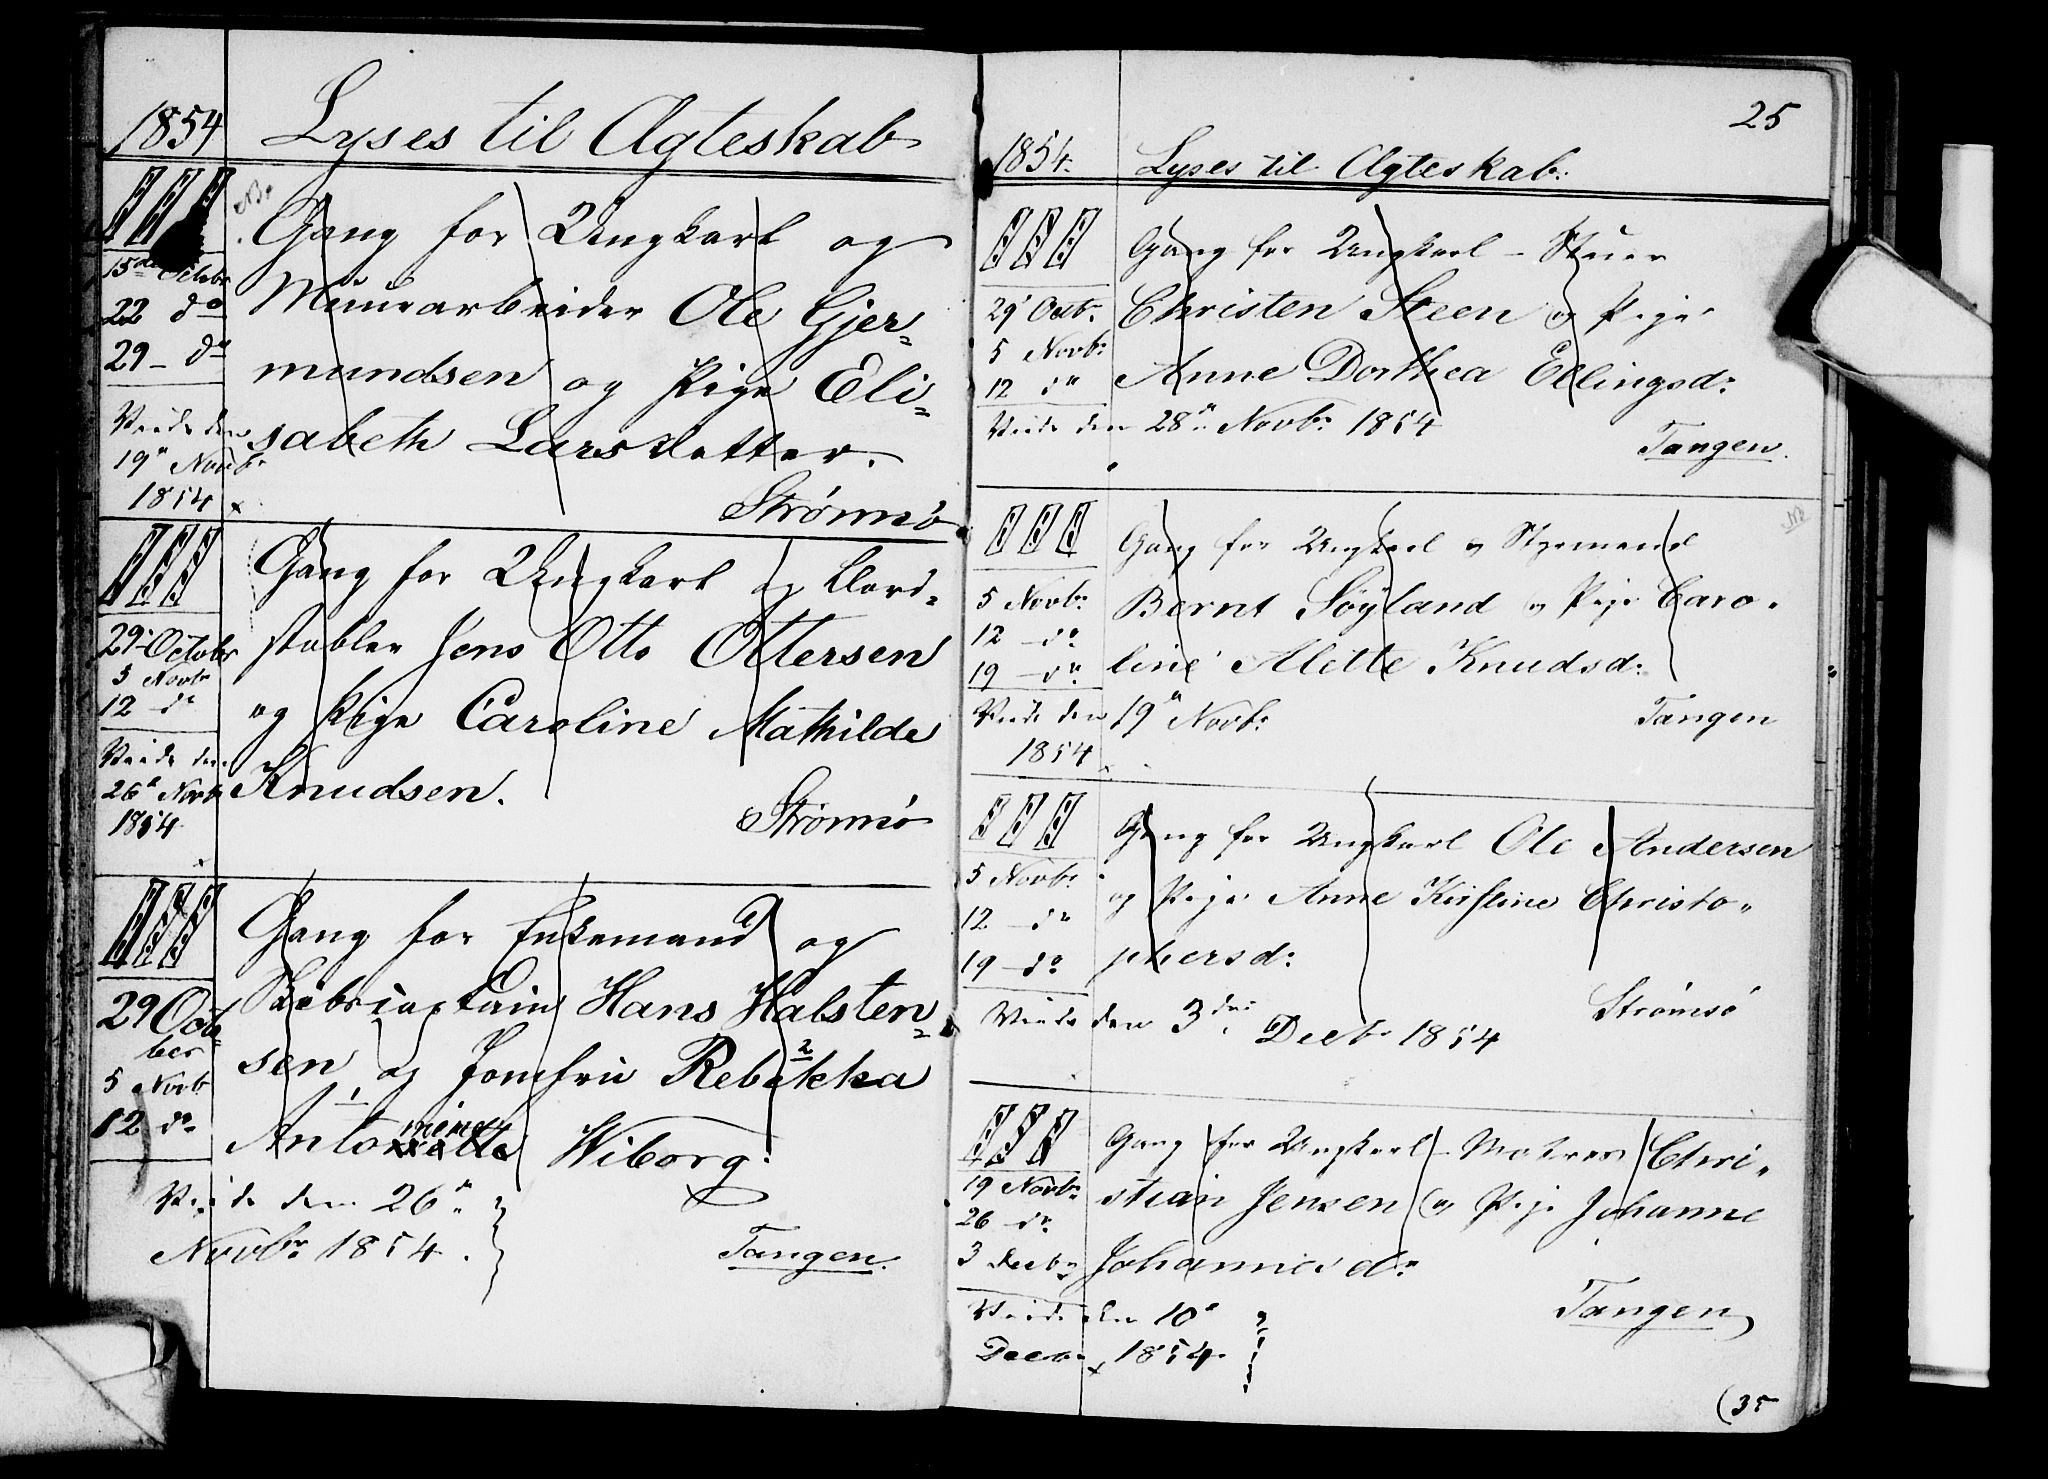 1854 Lyses til Ægteskab
NB.
Gang for Ungkarl og
15de Octobr
22 do
29 – do
Muurarbeider Ole Gjer-
mundsen og Pige Eli-
sabeth Larsdatter.
Viede den
19de Novbr
1854
Strømsø
Gang for Ungkarl og
29 Octobr
5 Novbr
12 do
stabler Jens Otto Ottersen
og Pige Caroline Mathilde
Knudsen.
Viede den
26de Novbr
1854
Strømsø
Gang for Enkemand og
29 Octo-
ber
5 Novbr
12 do
Skibscaptain Hans Halsten-
sen og Jomfru Rebekka 2
1
Antonette mine Wiborg.
Viede den 26de
Novbr 1854.
Tangen.
25
1854. Lyses til Ægteskab:
Gang for Ungkarl – Stuer
29 Octbr.
5 Novbr:
12 do
Christen Steen og Pige
Anne Dorthea Ellingsd:
Viede den 28de Novbr 1854
Tangen.
NB
Gang for Ungkarl og Styrmand
5 Novbr:
12 – do
19 – do
Bernt Söyland og Pige Caro-
line Alette Knudsd:
Viede den 19de Novbr:
1854
Tangen
Gang for Ungkarl Ole Andersen
5 Novbr:
12 – do
19 – do
og Pige Anne Kirstine Christo-
phersd:
Strømsø
Viede den 3die Decbr 1854
Gang for Ungkarl – Matros Chri-
19 Novbr
26 – do
3 Decbr
stian Jensen og Pige Johanne
Johannesd:
Viede den 10de
Decbr 1854.
Tangen
(35